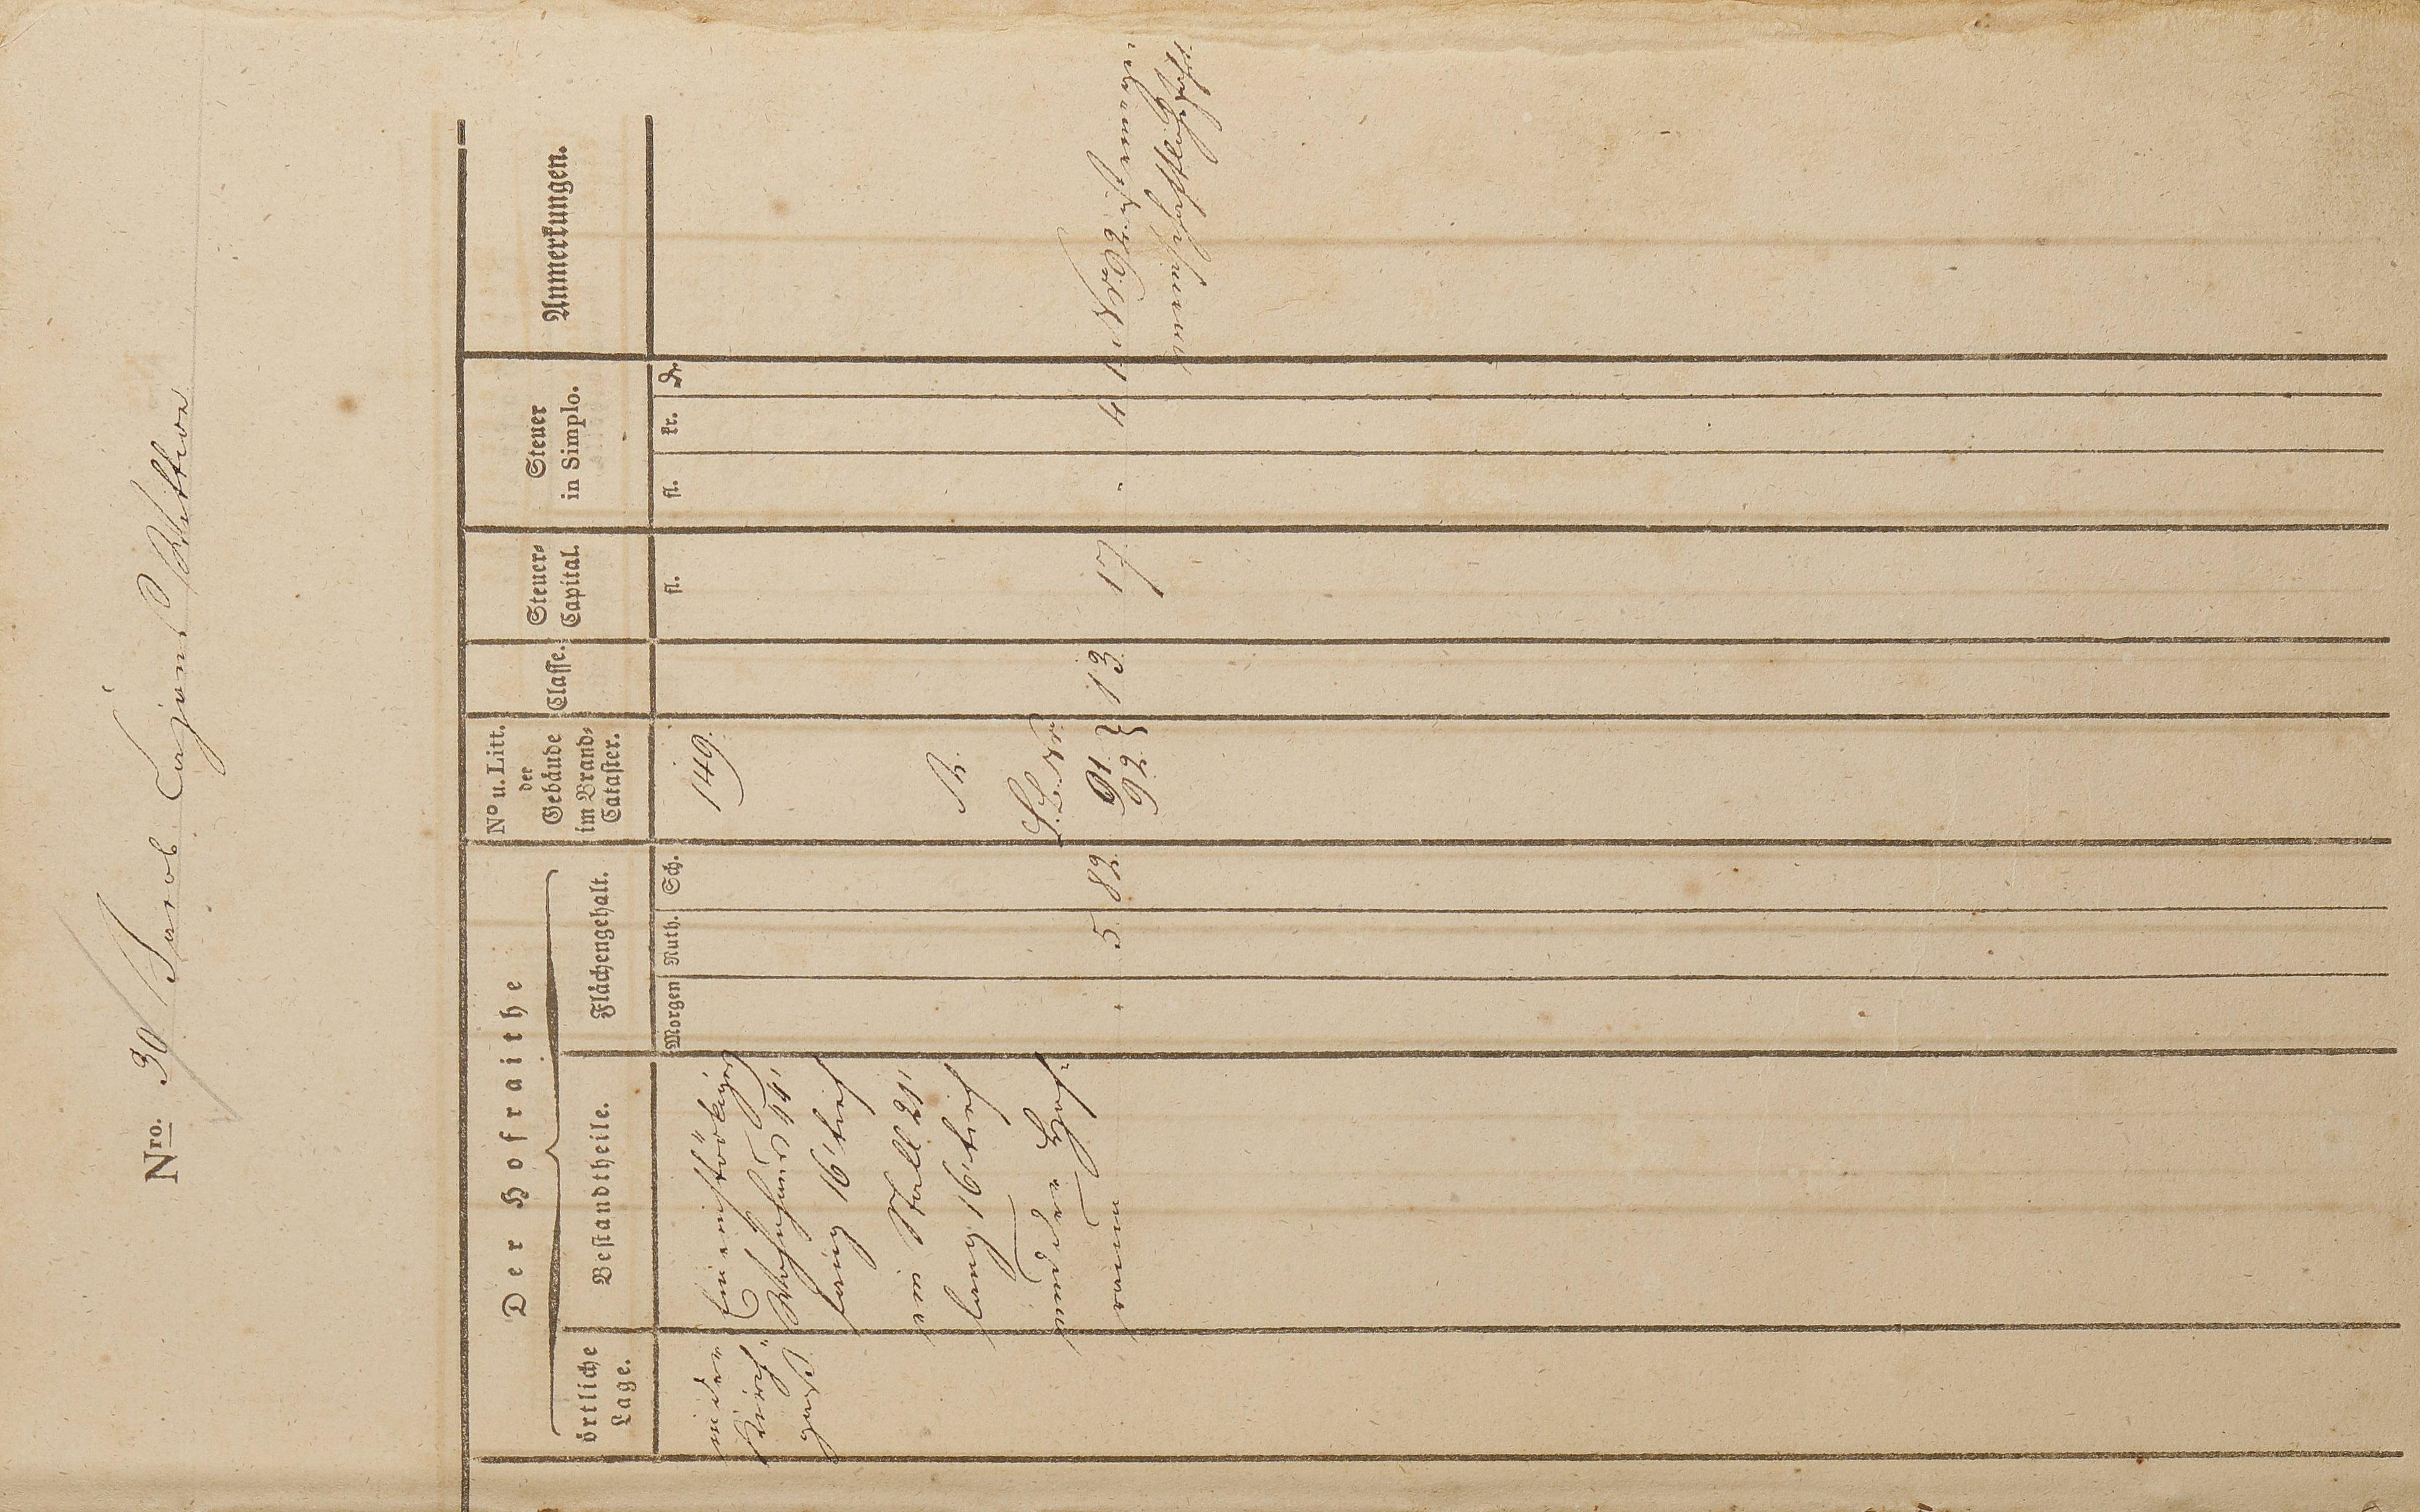 Nro. 30 Jacob Cajons Wittwe
Der Hofraithe
örtliche
Lage.
Bestandtheile.
Flächengehalt.
Morgen Ruth. Sch.
No u. Litt.
der
Gebäude
im Brand-
Cataster.
Classe.
Steuer-
Capital.
fl.
Steuer
in Simplo.
fl. kr. Pf.
Anmerkungen.
in der
Kirch
gaß
Ein einstöckiges
Wohnhaus 44'
lang 16' tief
ein Stall 21'
lang 16' tief
und der Hof-
raum
" 5 82
149.
St. B. Nro
91 }
92 }
13
17
" 4 1
Nro 92 ist
gemeinschaftlich